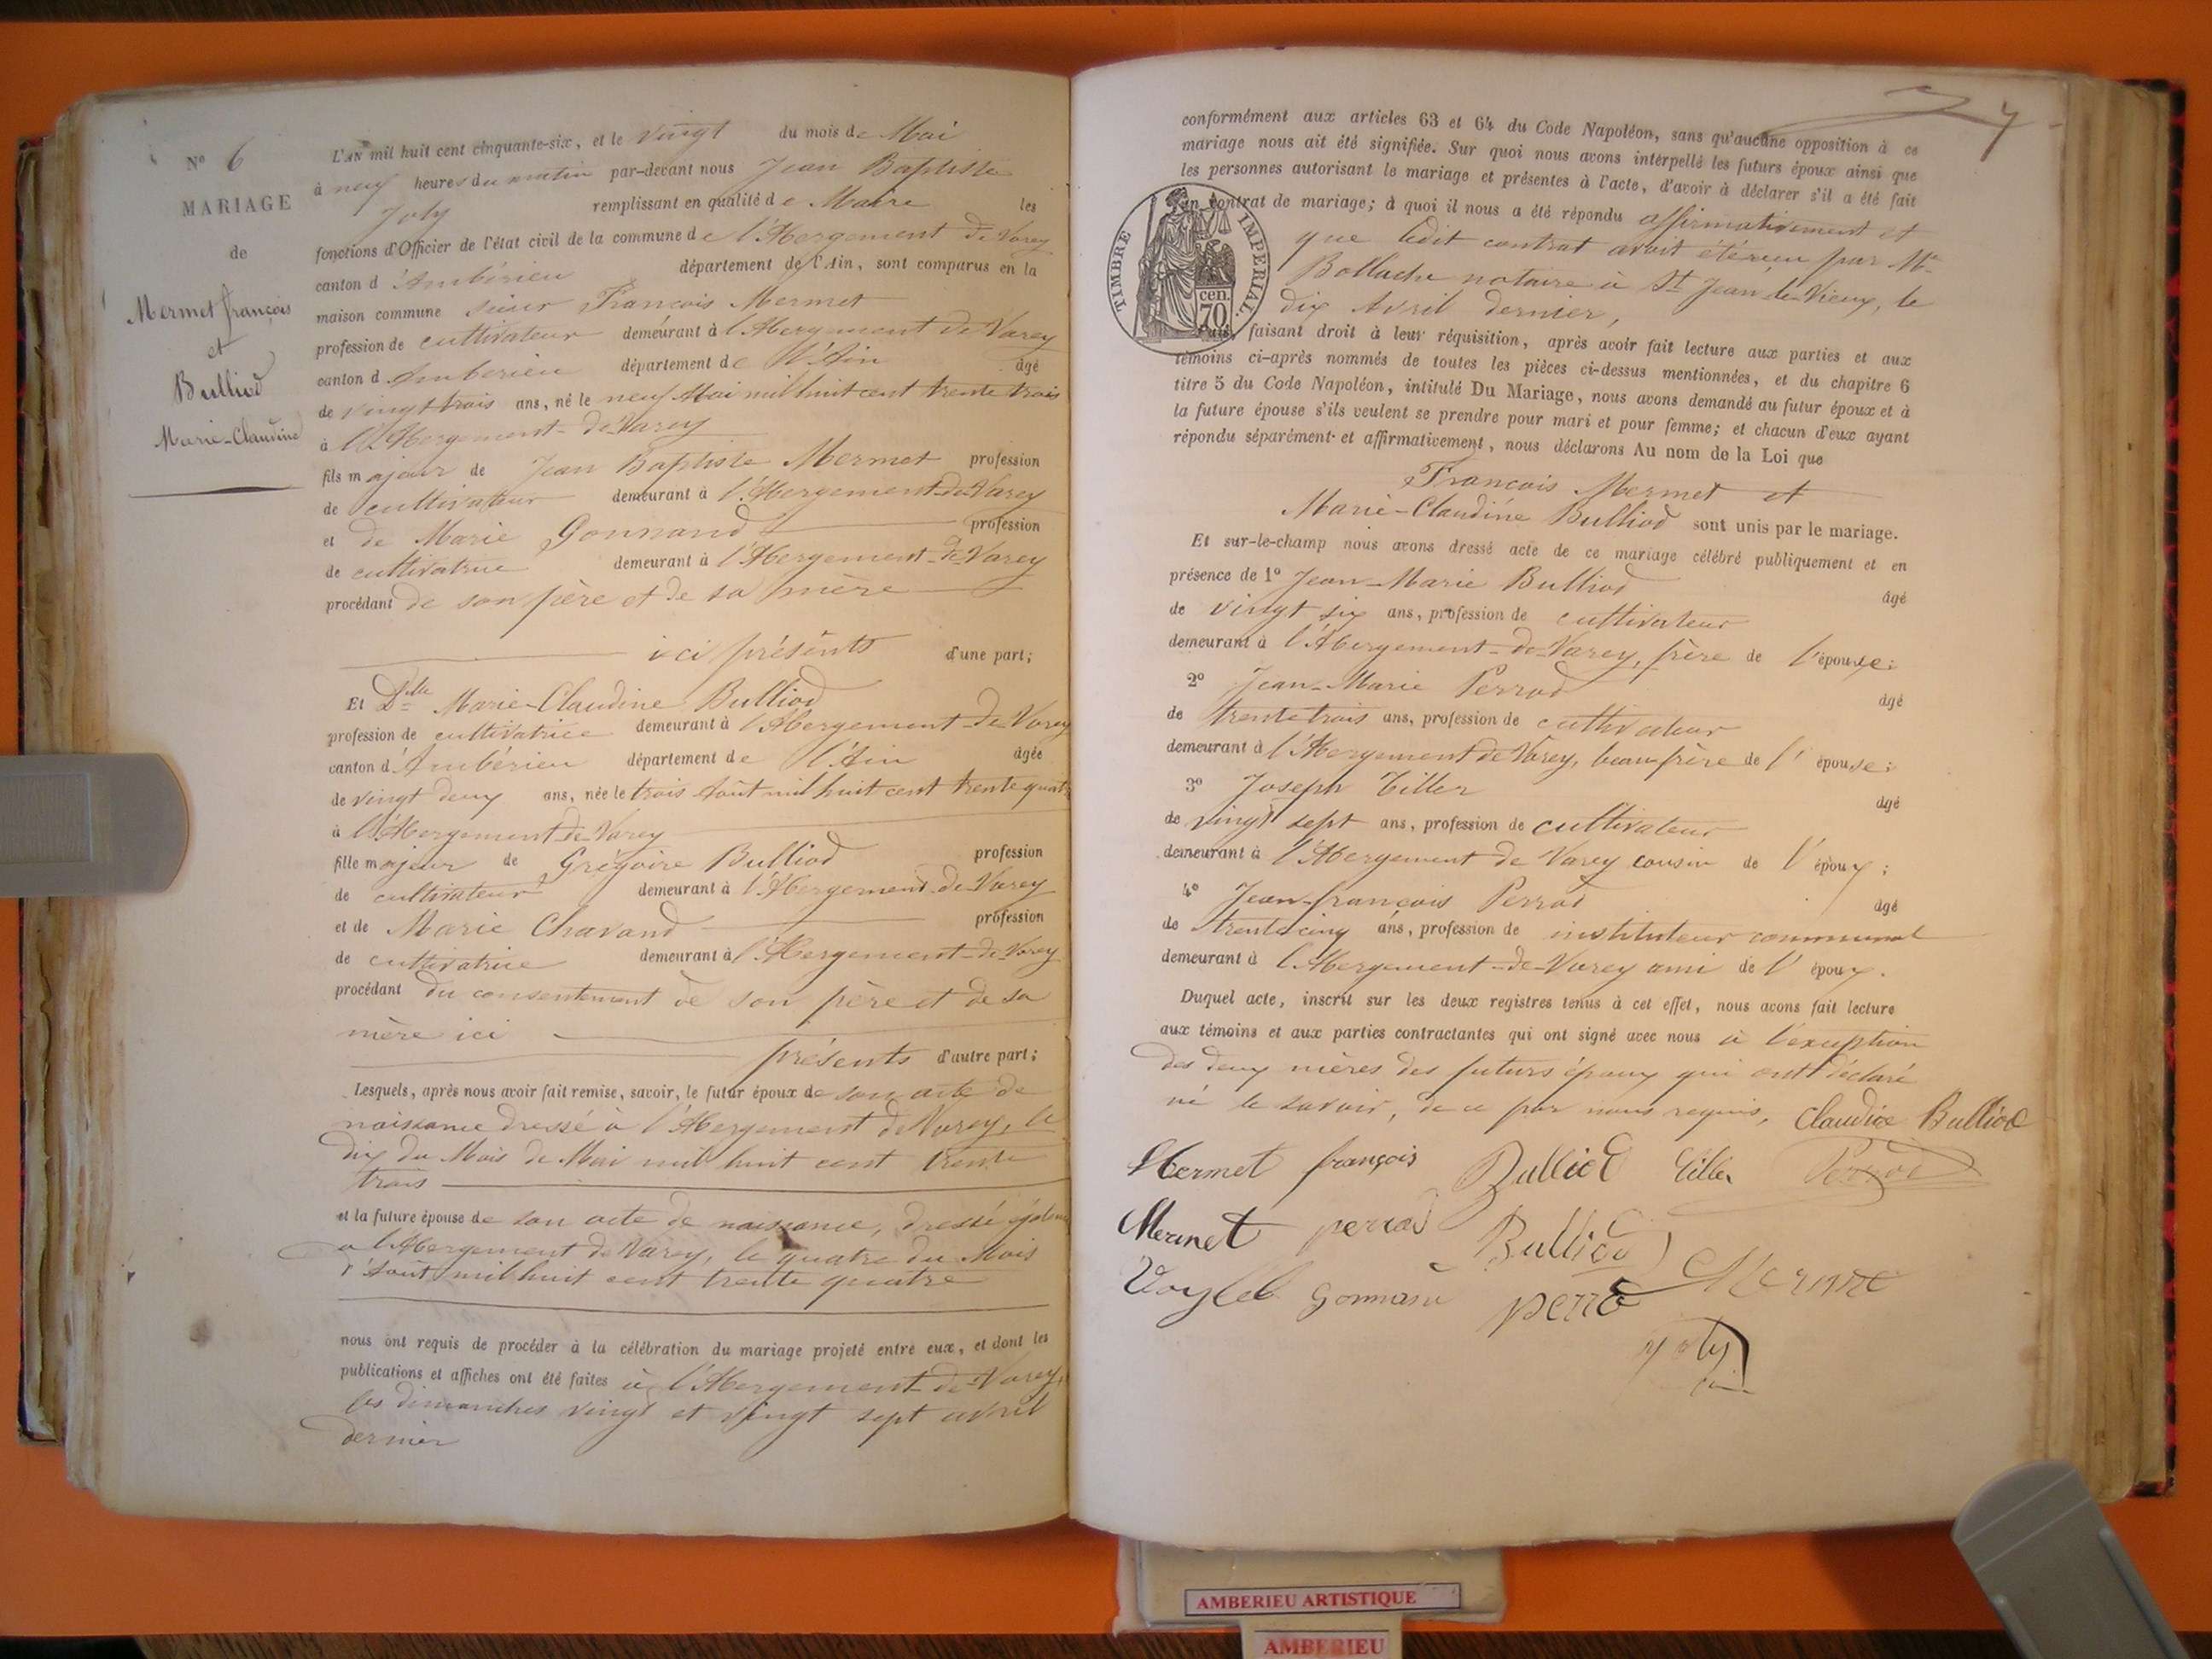 N° 6
MARIAGE
de
Mermet françois
et
Bulliod
Marie-Claudine
L'AN mil huit cent cinquante-six, et le vingt du mois de Mai
à neuf heures du matin par-devant nous Jean Baptiste
Joly remplissant en qualité de Maire les
fonctions d'Officier de l'état civil de la commune de l'Abergement de Varey
canton d'Ambérieu département de l'Ain, sont comparus en la
maison commune sieur François Mermet
profession de cultivateur demeurant à l'Abergement de Varey
canton d'Ambérieu département de l'Ain âgé
de vingt trois ans, né le neuf Mai mil huit cent trente trois
à l'Abergement-de-Varey
fils majeur de Jean Baptiste Mermet profession
de cultivateur demeurant à l'Abergement-de-Varey
et de Marie Gonnand profession
de cultivatrice demeurant à l'Abergement-de-Varey
procédant de son père et de sa mère
ici présents d'une part;
Et Dlle Marie-Claudine Bulliod
profession de cultivatrice demeurant à l'Abergement-de-Varey
canton d'Ambérieu département de l'Ain âgée
de vingt deux ans, née le trois Août mil huit cent trente quatre
à l'Abergement-de-Varey
fille majeur de Grégoire Bulliod profession
de cultivateur demeurant à l'Abergement-de-Varey
et de Marie Chavand profession
de cultivatrice demeurant à l'Abergement-de-Varey
procédant du consentement de son père et de sa
mère ici
présents d'autre part;
Lesquels, après nous avoir fait remise, savoir, le futur époux de son acte de
naissance dressé à l'Abergement de Varey, le
dix du Mois de Mai mil huit cent trente
trois
et la future épouse de son acte de naissance, dressé
a l'Abergement de Varey, le quatre du Mois
d'Août mil huit cent trente quatre
nous ont requis de procéder à la célébration du mariage projeté entre eux, et dont les
publications et affiches ont été faites à l'Abergement-de-Varey,
les dimanches vingt et vingt sept avril
dernier
conformément aux articles 63 et 64 du Code Napoléon, sans qu'aucune opposition à ce
mariage nous ait été signifiée. Sur quoi nous avons interpellé les futurs époux ainsi que
les personnes autorisant le mariage et présentes à l'acte, d'avoir à déclarer s'il a été fait
un contrat de mariage; à quoi il nous a été répondu affirmativement et
que ledit contrat avait été reçu par Me
Bollache notaire à St Jean le Vieux, le
dix Avril dernier,
TIMBRE IMPÉRIAL
cen.
70
Puis, faisant droit à leur réquisition, après avoir fait lecture aux parties et aux
témoins ci-après nommés de toutes les pièces ci-dessus mentionnées, et du chapitre 6
titre 5 du Code Napoléon, intitulé Du Mariage, nous avons demandé au futur époux et à
la future épouse s'ils veulent se prendre pour mari et pour femme; et chacun d'eux ayant
répondu séparément et affirmativement, nous déclarons Au nom de la Loi que
François Mermet et
Marie-Claudine Bulliod sont unis par le mariage.
Et sur-le-champ nous avons dressé acte de ce mariage célébré publiquement et en
présence de 1° Jean-Marie Bulliod âgé
de vingt six ans, profession de cultivateur
demeurant à l'Abergement-de-Varey, frère de l'épouse:
2° Jean-Marie Perrod âgé
de trente trois ans, profession de cultivateur
demeurant à l'Abergement de Varey, beau-frère de l'épouse:
3° Joseph Tiller âgé
de vingt sept ans, profession de cultivateur
demeurant à l'Abergement de Varey cousin de l'époux;
4° Jean-françois Perrod âgé
de trente cinq ans, profession de instituteur communal
demeurant à l'Abergement-de-Varey ami de l'époux.
Duquel acte, inscrit sur les deux registres tenus à cet effet, nous avons fait lecture
aux témoins et aux parties contractantes qui ont signé avec nous à l'exception
des deux mères des futurs époux qui ont déclaré
ne le savoir, de ce par nous requis, Claudice Bulliod
Mermet françois Bulliod Tiller Perrod
Mermet perrod Bulliod Mermet
Gonnand perrod
Joly
AMBERIEU ARTISTIQUE
AMBERIEU